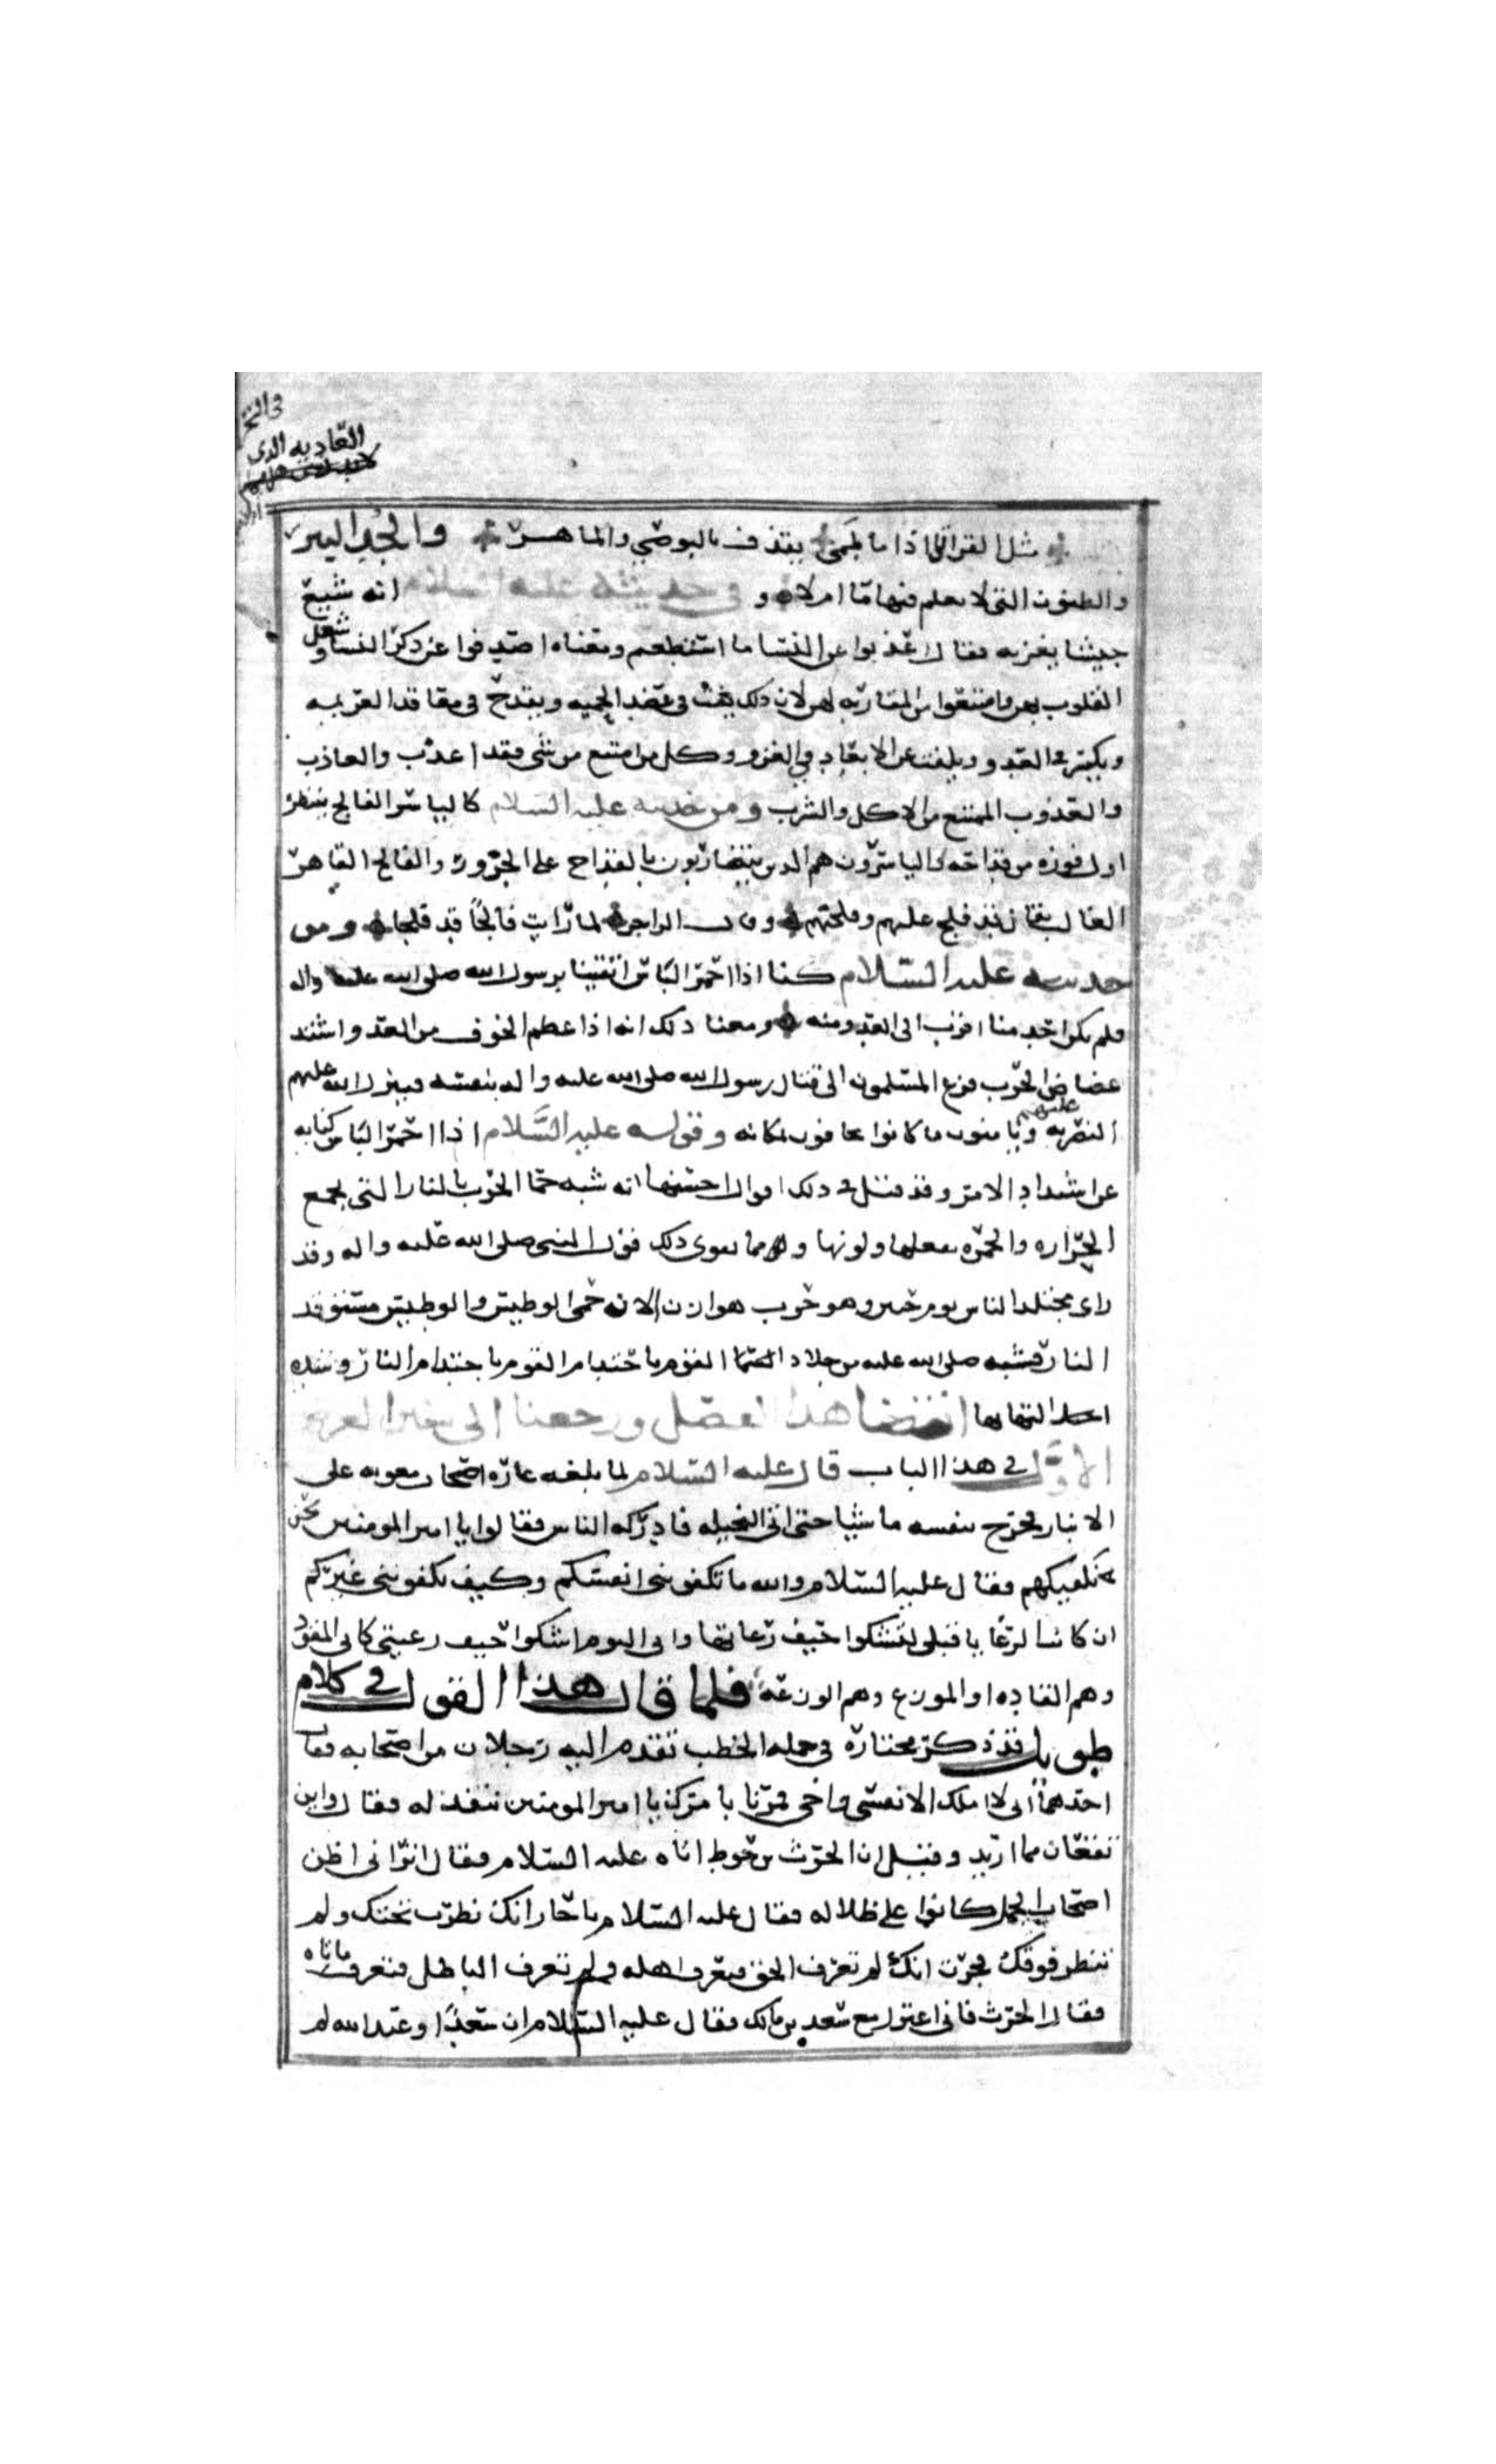 في النخـ
العادية الذي
مثل الفراتي اذا ما طمى يقذف بالبوصي والماهر والجد البير
والظنون التي لا يعلم فيها ما ام لا و في حديثه عليه السلام انه شيع
جيشا يغزيه فقال اعذبوا عن النسا ما استطعتم ومعناه اصدفوا عن ذكر النسا وشغل
القلوب بهن وامتنعوا من المقاربه لهن لان ذلك يفت في عضد الحميه ويقدح في معاقد العزيمه
ويكسر عن العدو ويلفت عن الابعاد في الغزو وكل من امتنع من شي فقد اعذب والعاذب
والعذوب الممتنع من الاكل والشرب ومن حديثه عليه السلام كالياسر الفالج ينتظر
اول فوزه من قداحه الياسرون هم الذين يتضاربون بالقداح على الجزور والفالج القاهر
الغالب يقال قد فلج عليهم وفلجهم وقال الراجز لما رايت فالجا قد فلجا ومن
حديثه عليه السلام كنا اذا احمر الباس اتقينا برسول الله صلى الله عليه واله
فلم يكن احد منا اقرب الى العدو منه ومعنا ذلك انه اذا عظم الخوف من العدو واشتد
عضاض الحرب فزع المسلمون الى قتال رسول الله صلى الله عليه واله بنفسه فينزل الله عليهم
النصر به ويامنون ما كانوا يخافون بمكانه وقوله عليه السلام اذا احمر الباس كنايه
عن اشتداد الامر وقد قيل في ذلك اقوال احسنها انه شبه حما الحرب بالنار التي تجمع
الحراره والحمره بفعلها ولونها ومما يقوي ذلك قول النبي صلى الله عليه واله وقد
راى مجتلد الناس يوم حنين وهو حرب هوازن الان حمي الوطيس والوطيس مستوقد
النار فشبه صلى الله عليه من جلاد القوم باحتدام النار وشده
التهابها انقضا هذا الفصل ورجعنا الى سنن الغرض
الاول في هذا الباب قال عليه السلام لما بلغه غاره اصحاب معويه على
الانبار فخرج بنفسه ماشيا حتى اتى النخيله فادركه الناس فقالوا يا امير المومنين نحن
نكفيكهم فقال عليه السلام والله ما تكفونني انفسكم وكيف تكفونني غيركم
ان كانت الرعايا قبلي لتشكوا حيف رعاتها واني اليوم اشكوا حيف رعيتي كاني المقود
وهم القاده او الموزع وهم الوزعه فلما قال هذا القول في كلام
طويل قد ذكر مختاره في جمله الخطب تقدم اليه رجلان من اصحابه فقال
احدهما اني لا املك الا نفسي واخي فمرنا بامرك يا امير المومنين ننفذ له فقال واين
تقعان مما اريد وقيل ان الحرث بن حوط اتاه عليه السلام فقال اتراني اظن
اصحاب الجمل كانوا على ظلاله فقال عليه السلام يا حار انك نظرت تحتك ولم
تنظر فوقك فجرت انك لم تعرف الحق فتعرف اهله ولم تعرف الباطل فتعرف من اتاه
فقال الحرث فاني اعتزل مع سعد بن مالك فقال عليه السلام ان سعدا وعبد الله لم